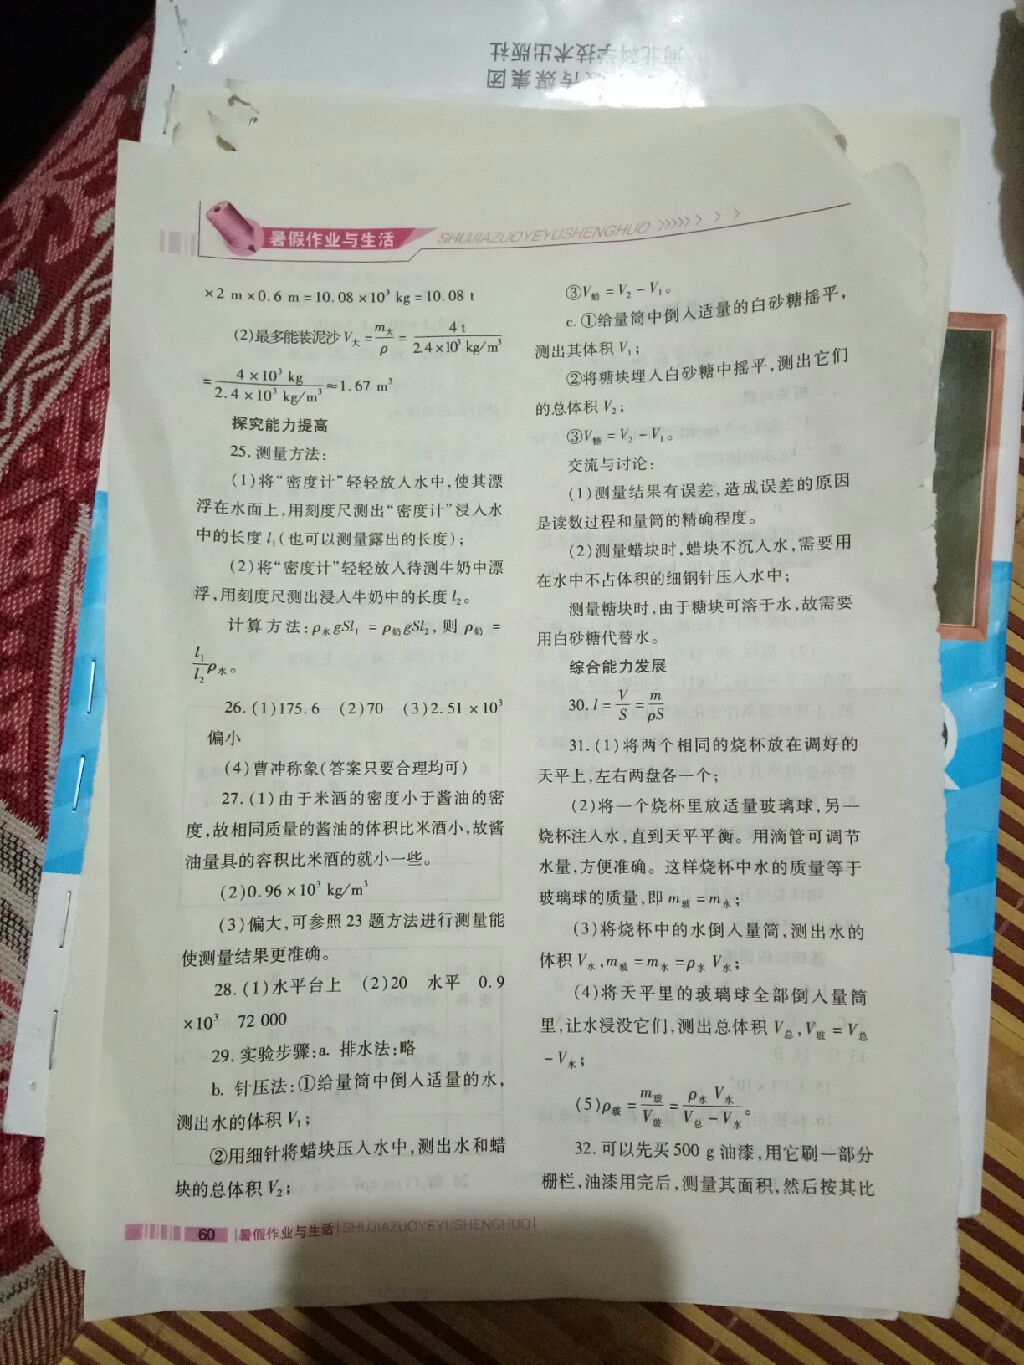 河北科学技术出版社
传媒集团
暑假作业与生活
SHUJIAZUOYEYUSHENGHUO
×2 m×0.6 m=10.08×10³ kg=10.08 t
(2)最多能装泥沙 V大=m大/ρ=4 t/2.4×10³ kg/m³
=4×10³ kg/2.4×10³ kg/m³≈1.67 m³
探究能力提高
25.测量方法:
(1)将“密度计”轻轻放入水中,使其漂
浮在水面上,用刻度尺测出“密度计”浸入水
中的长度 l₁(也可以测量露出的长度);
(2)将“密度计”轻轻放入待测牛奶中漂
浮,用刻度尺测出浸入牛奶中的长度 l₂。
计算方法:ρ水gSl₁=ρ奶gSl₂,则 ρ奶=
l₁/l₂ρ水。
26.(1)175.6 (2)70 (3)2.51×10³
偏小
(4)曹冲称象(答案只要合理均可)
27.(1)由于米酒的密度小于酱油的密
度,故相同质量的酱油的体积比米酒小,故酱
油量具的容积比米酒的就小一些。
(2)0.96×10³ kg/m³
(3)偏大,可参照 23 题方法进行测量能
使测量结果更准确。
28.(1)水平台上 (2)20 水平 0.9
×10³ 72 000
29.实验步骤:a. 排水法:略
b. 针压法:①给量筒中倒入适量的水,
测出水的体积 V₁;
②用细针将蜡块压入水中,测出水和蜡
块的总体积 V₂;
③V蜡=V₂-V₁。
c.①给量筒中倒入适量的白砂糖摇平,
测出其体积 V₁;
②将糖块埋入白砂糖中摇平,测出它们
的总体积 V₂;
③V糖=V₂-V₁。
交流与讨论:
(1)测量结果有误差,造成误差的原因
是读数过程和量筒的精确程度。
(2)测量蜡块时,蜡块不沉入水,需要用
在水中不占体积的细钢针压入水中;
测量糖块时,由于糖块可溶于水,故需要
用白砂糖代替水。
综合能力发展
30.l=V/S=m/ρS
31.(1)将两个相同的烧杯放在调好的
天平上,左右两盘各一个;
(2)将一个烧杯里放适量玻璃球,另一
烧杯注入水,直到天平平衡。用滴管可调节
水量,方便准确。这样烧杯中水的质量等于
玻璃球的质量,即 m玻=m水;
(3)将烧杯中的水倒入量筒,测出水的
体积 V水,m玻=m水=ρ水 V水;
(4)将天平里的玻璃球全部倒入量筒
里,让水浸没它们,测出总体积 V总,V玻=V总
-V水;
(5)ρ玻=m玻/V玻=ρ水 V水/V总-V水。
32.可以先买 500 g 油漆,用它刷一部分
栅栏,油漆用完后,测量其面积,然后按其比
60 暑假作业与生活 SHUJIAZUOYEYUSHENGHUO